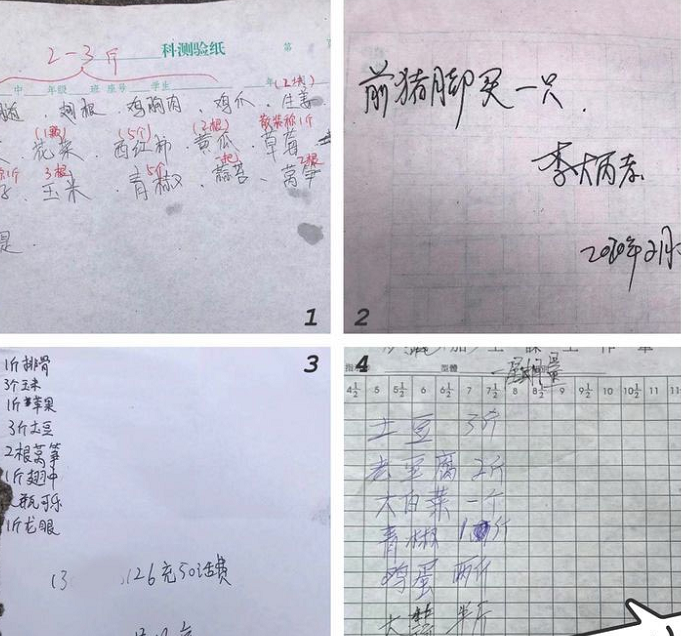 2-3斤
科测验纸 第 页
中 年级 班 座号 学生 年
(2块)
翅根、鸡胸肉、鸡爪、生姜
(1颗) (5个) (2根) 散装称1斤
花菜、西红柿、黄瓜、草莓
1斤 3根 5个 一把 2根
玉米、青椒、蒜苔、莴笋
是.
1
前猪脚买一只.
李大丙孝
2020年2月
2
3
1斤排骨
3个玉米
1斤苹果
3斤土豆
2根莴笋
1斤翅中
瓶可乐
1斤龙眼
13 126充50话费
4
一层
4½ 5 5½ 6 6½ 7 7½ 8 8½ 9 9½ 10 10½ 11 11
土豆 3斤
老豆腐 2斤
大白菜 一个
青椒 1斤
鸡蛋 两斤
大蒜 半斤